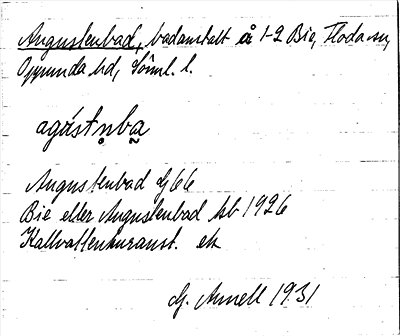 Augustenbad, badanstalt å 1-2 Bie, Floda sn,
Oppunda hd, Söml. l.
agástn̥ba̰
Augustenbad G66
Bie eller Augustenbad kb 1926
Kallvattenkuranst. ek
G. Annell 1931